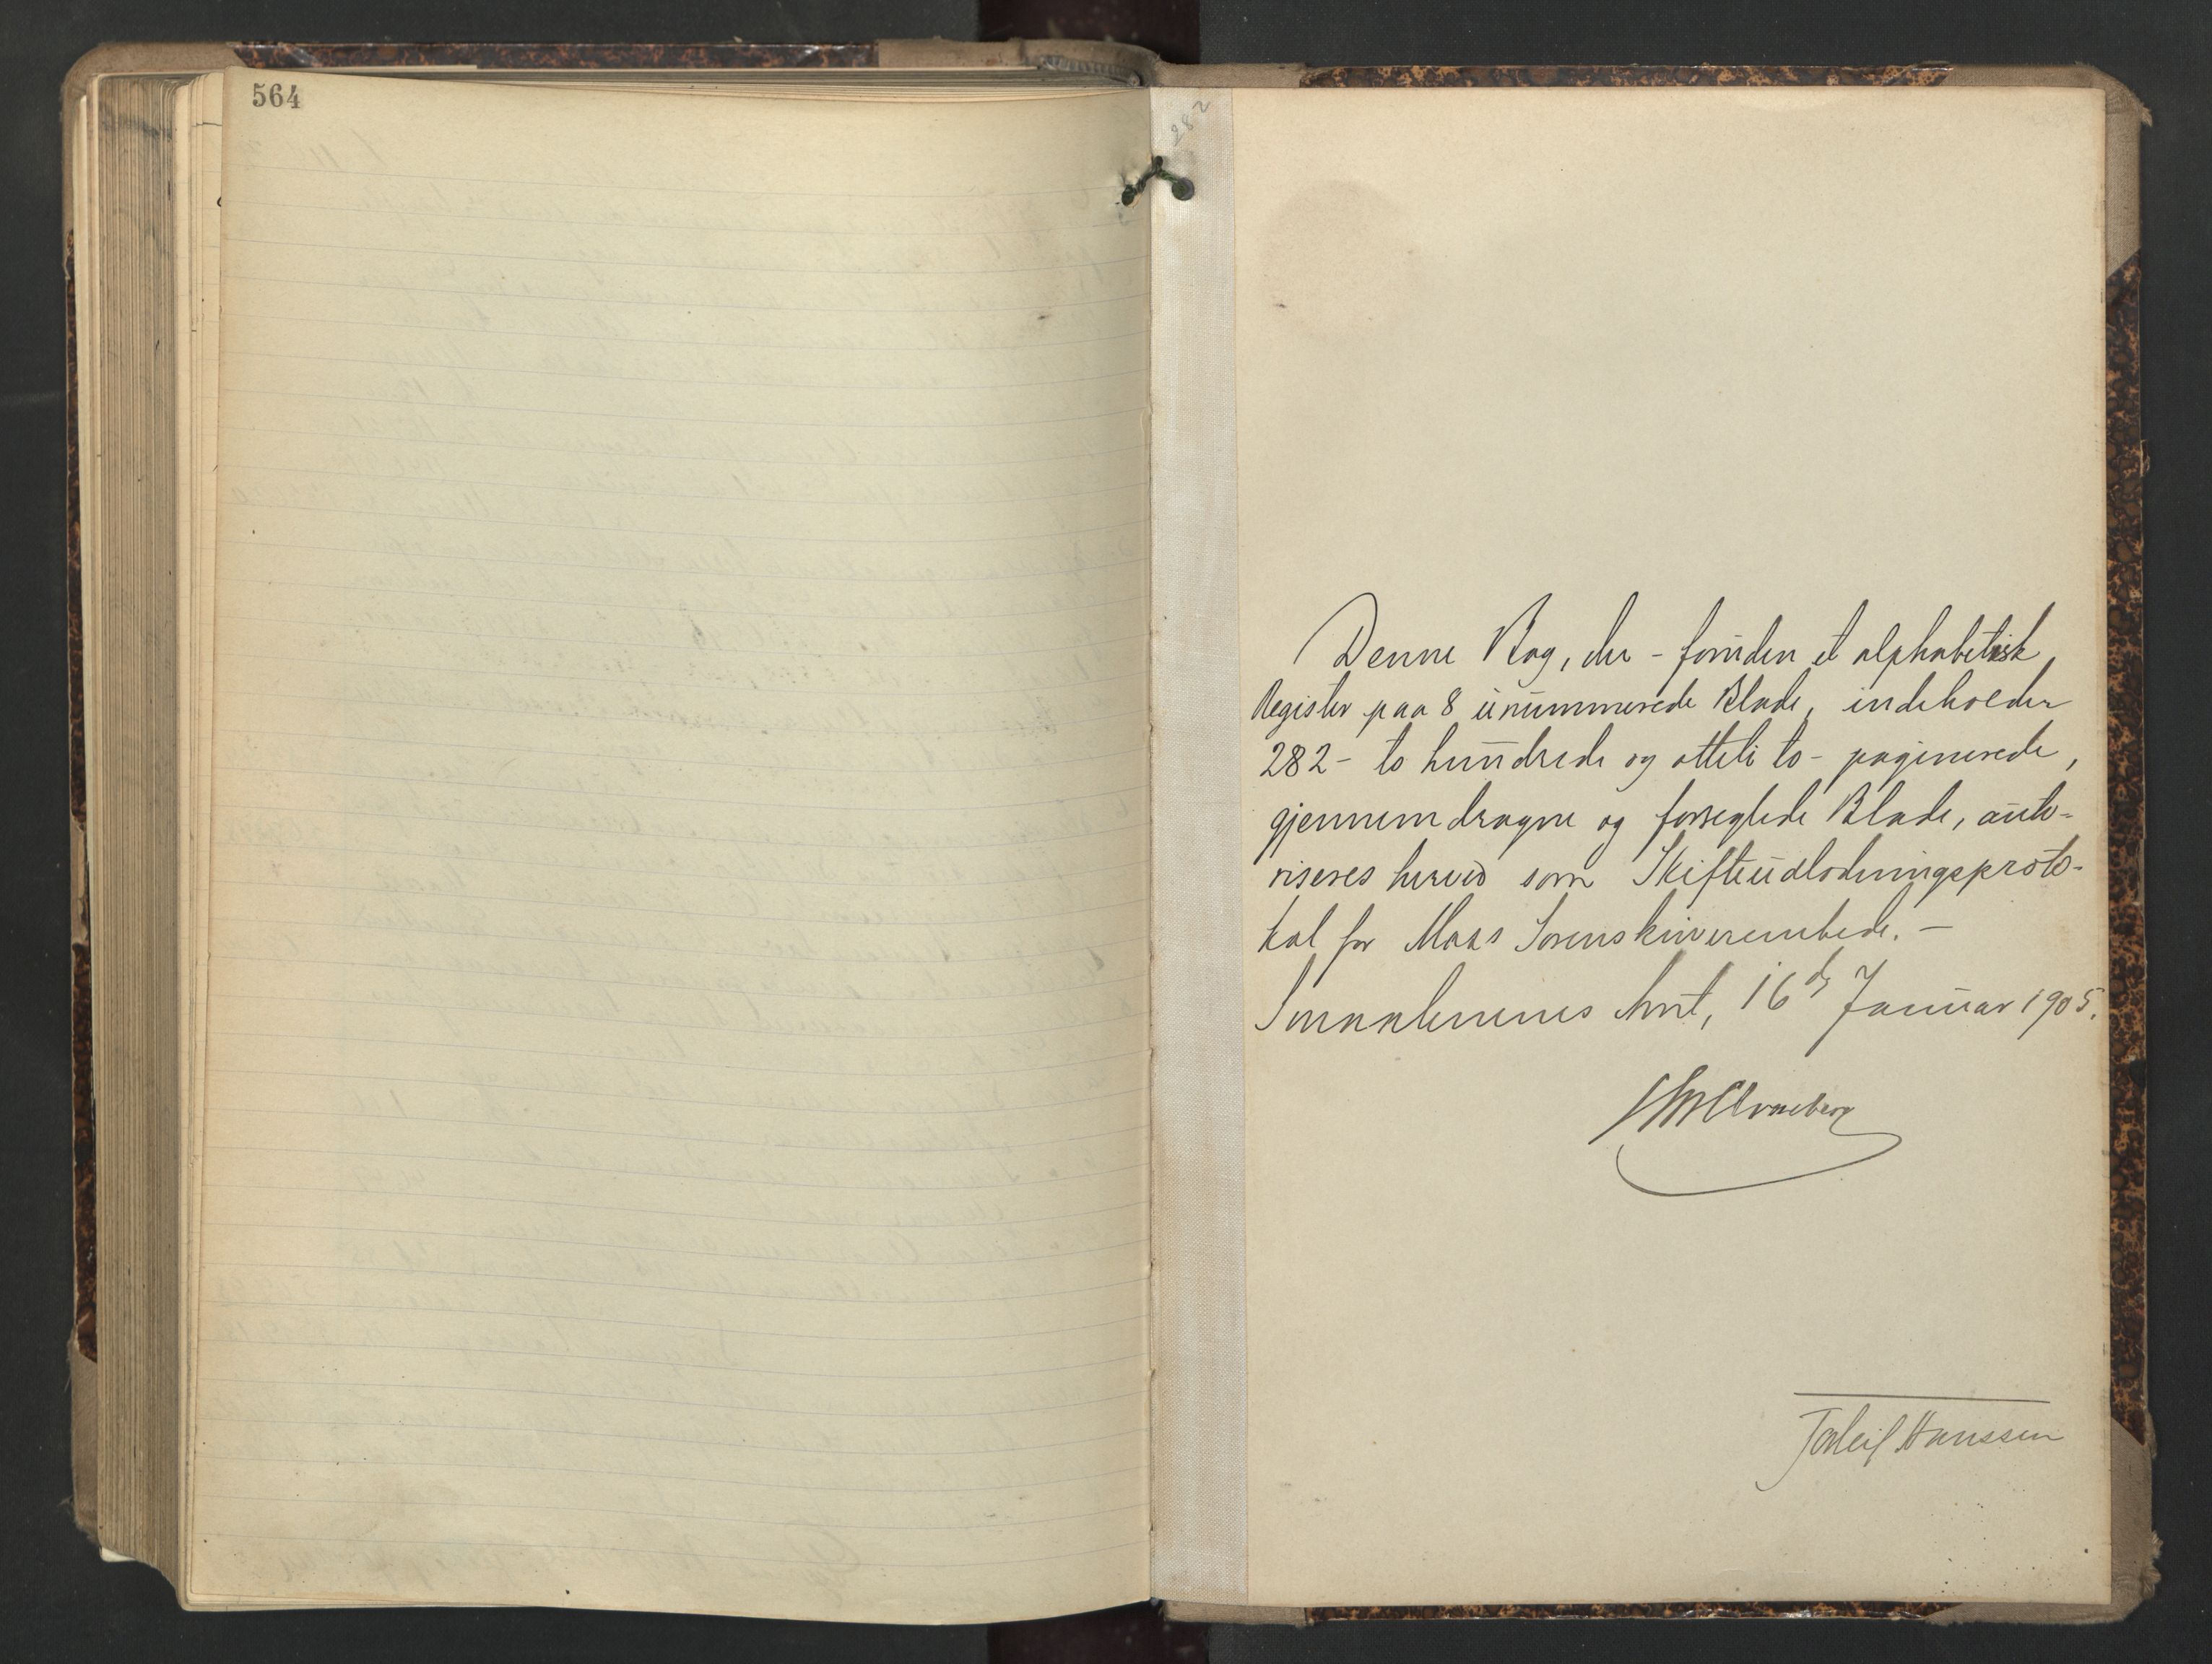 564
282
Denne Bog, der - foruden et alphabetisk
Register paa 8 unummerede Blade, indeholder
282 - to hundrede og otteti to - paginerede,
gjennemdragne og forseglede Blade, auto-
riseres herved som Skifteudlodningsproto-
kol for Moss Sorenskriverembede. -
Smaalenenes Amt, 16de Januar 1905.
Torleif Hanssen